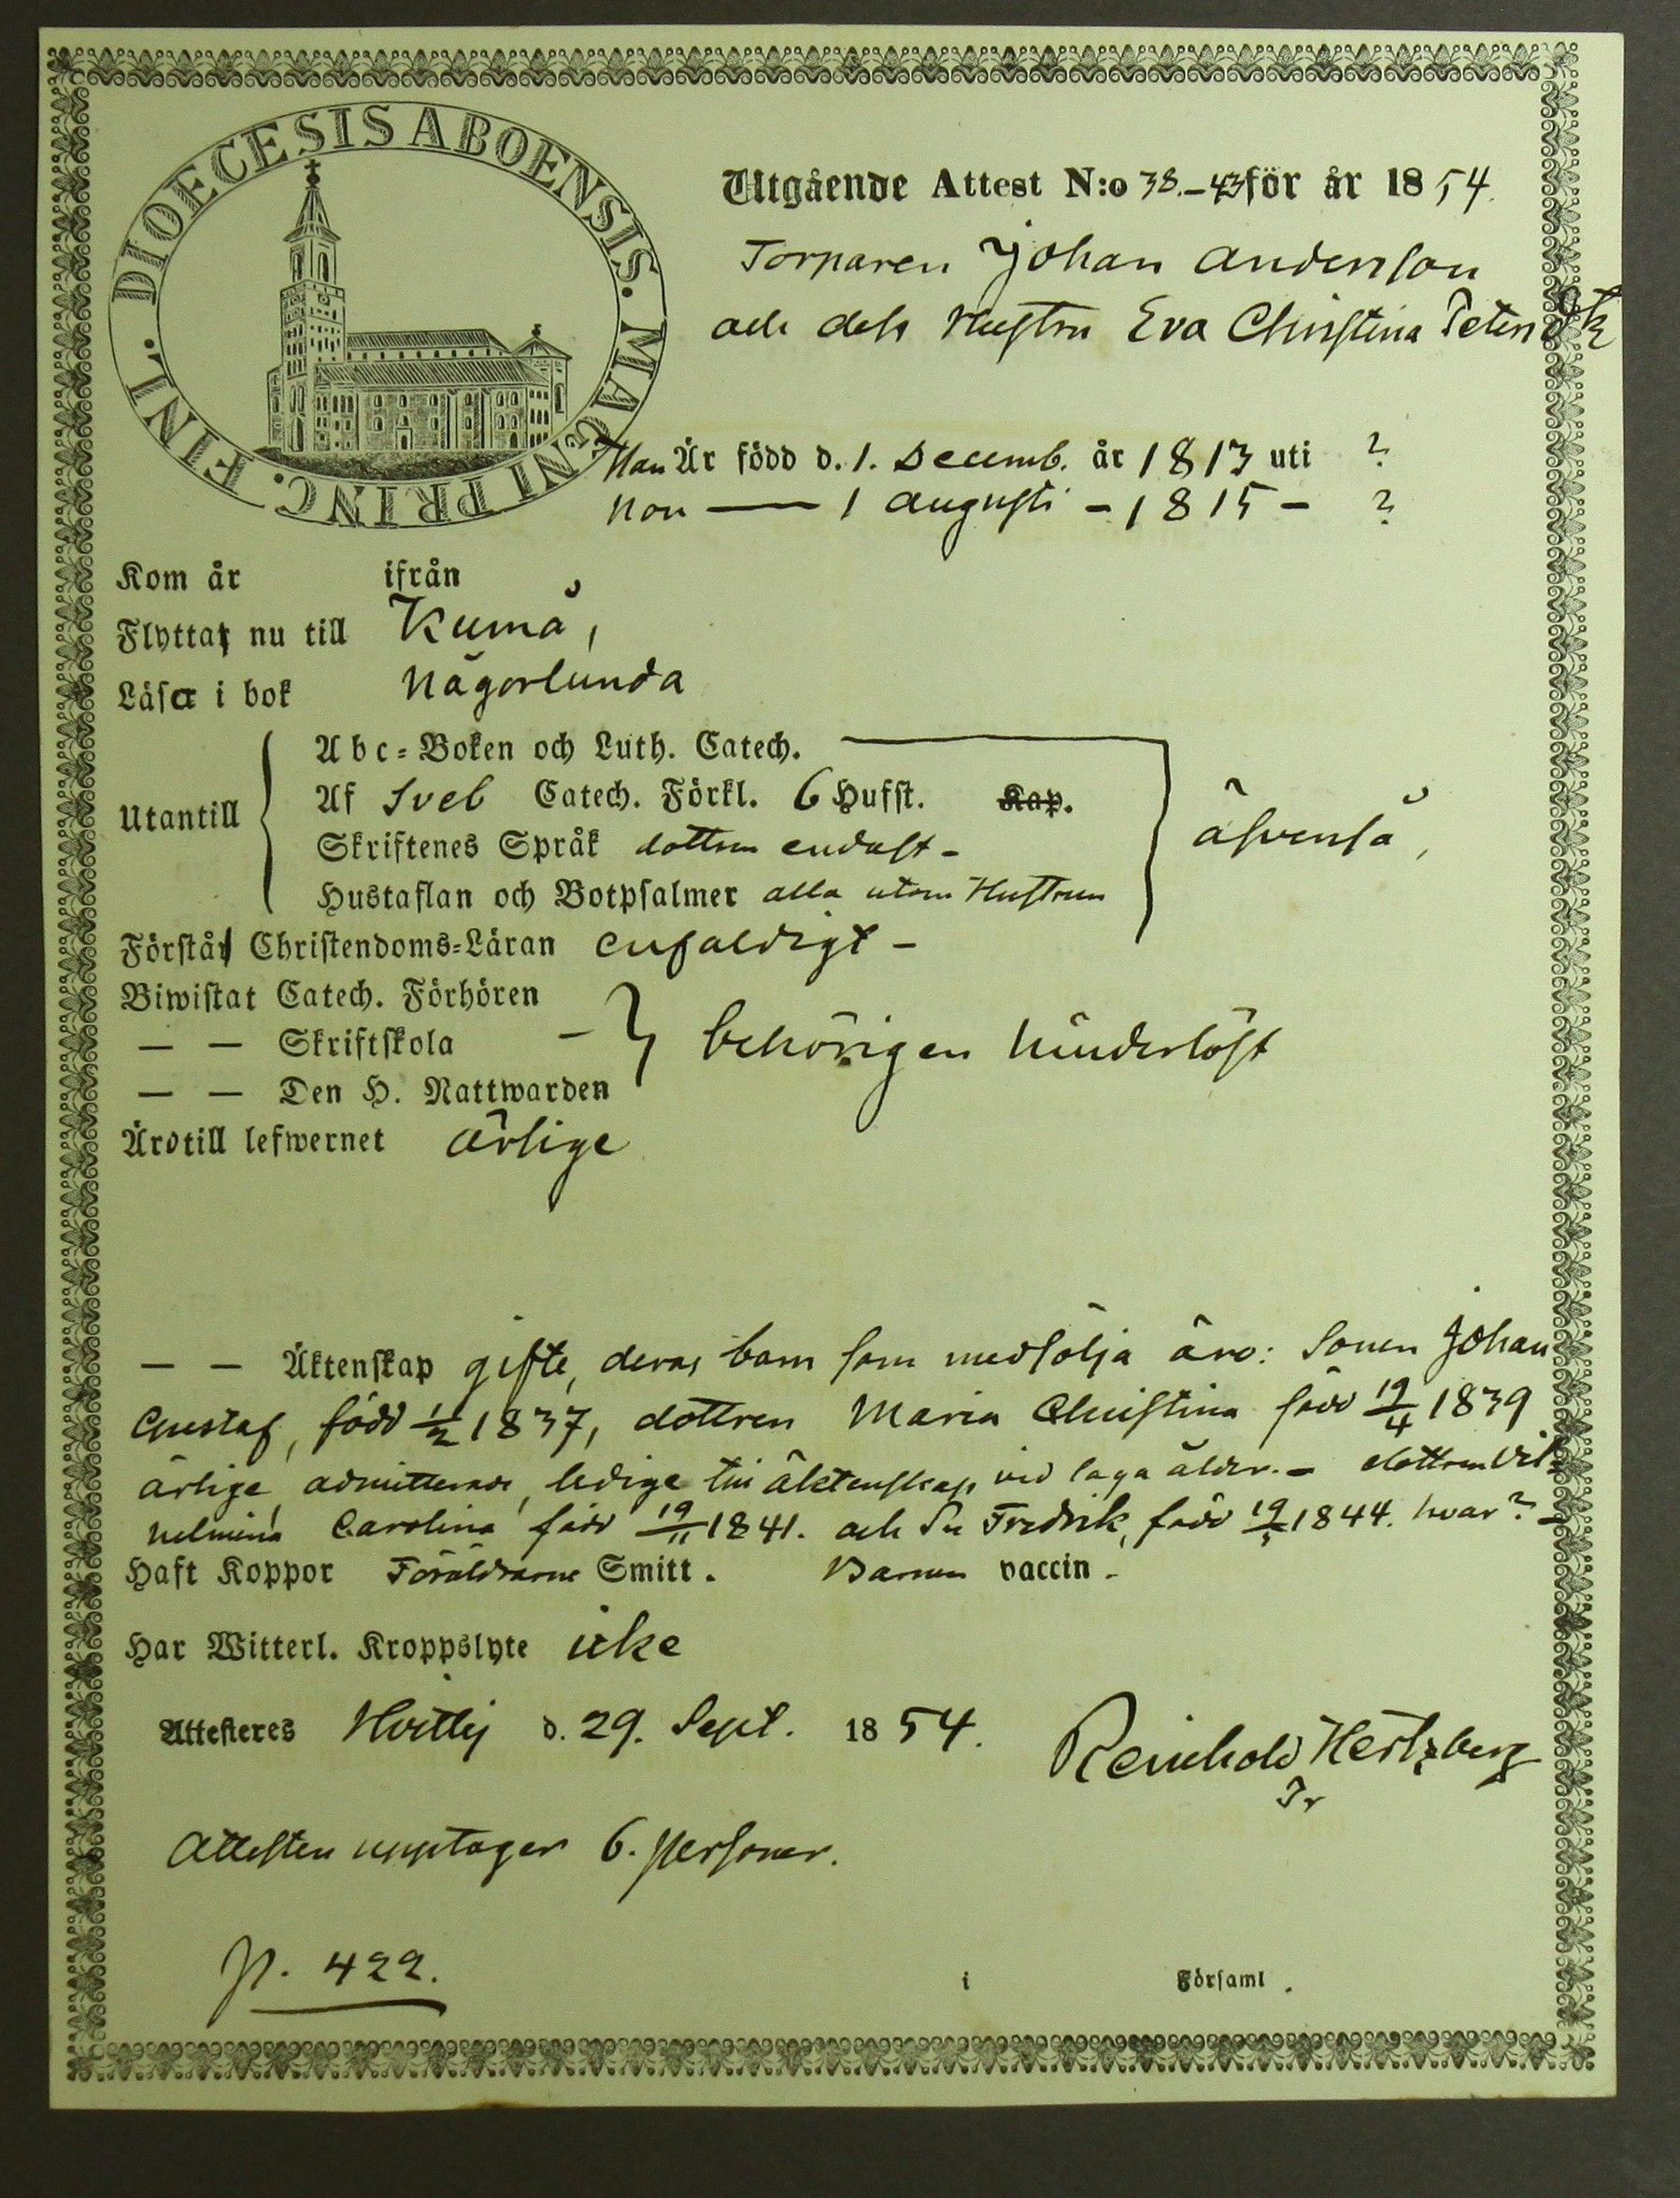 DIOECESIS ABOENSIS. MAGNI PRINC. FINL.
Utgående Attest N:o 38.-43 för år 1854.
Torparen Johan Andersson
och dess Hustru Eva Christina Petersdtr
Han Är född d. 1. Decemb. år 1813 uti ?
Hon — 1 Augusti - 1815 - ?
Kom år ifrån
Flytta nu till Kumå,
Läsa i bok någorlunda
Utantill
Abc-Boken och Luth. Catech.
Af Sveb Catech. Förkl. 6 Hufst. Kap.
Skriftenes Språk dottren endast -
Hustaflan och Botpsalmer alla utom Hustrun
äfvenså,
Förstå Christendoms-Läran enfaldigt -
Biwistat Catech. Förhören
— — Skriftskola - behörigen hinderlöst
— — Den H. Nattwarden
Äro till lefwernet ärlige
— — Äktenskap gifte, deras barn som medfölja äro: Sonen Johan
Gustaf, född 1/2 1837, dottren Maria Christina född 19/4 1839
ärlige, admitterade, ledige till äktenskap vid laga ålder. - dottren Vil-
helmina Carolina född 19/11 1841. och Sn Fredrik, född 1844. hvar? -
Haft Koppor Föräldrarne Smitt. Barnen vaccin.
Har Witterl. Kroppslyte icke
Attesteres Hvittis d. 29. Sept. 1854.
Reinhold Hertzberg
Attesten upptager 6. personer.
p. 422.
i Församl.